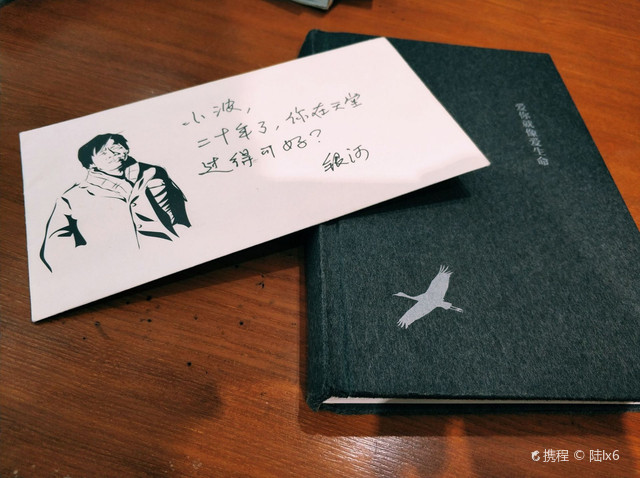 小波，
二十年了，你在天堂
过得可好？
银河
爱你就像爱生命
携程 © 陆lx6